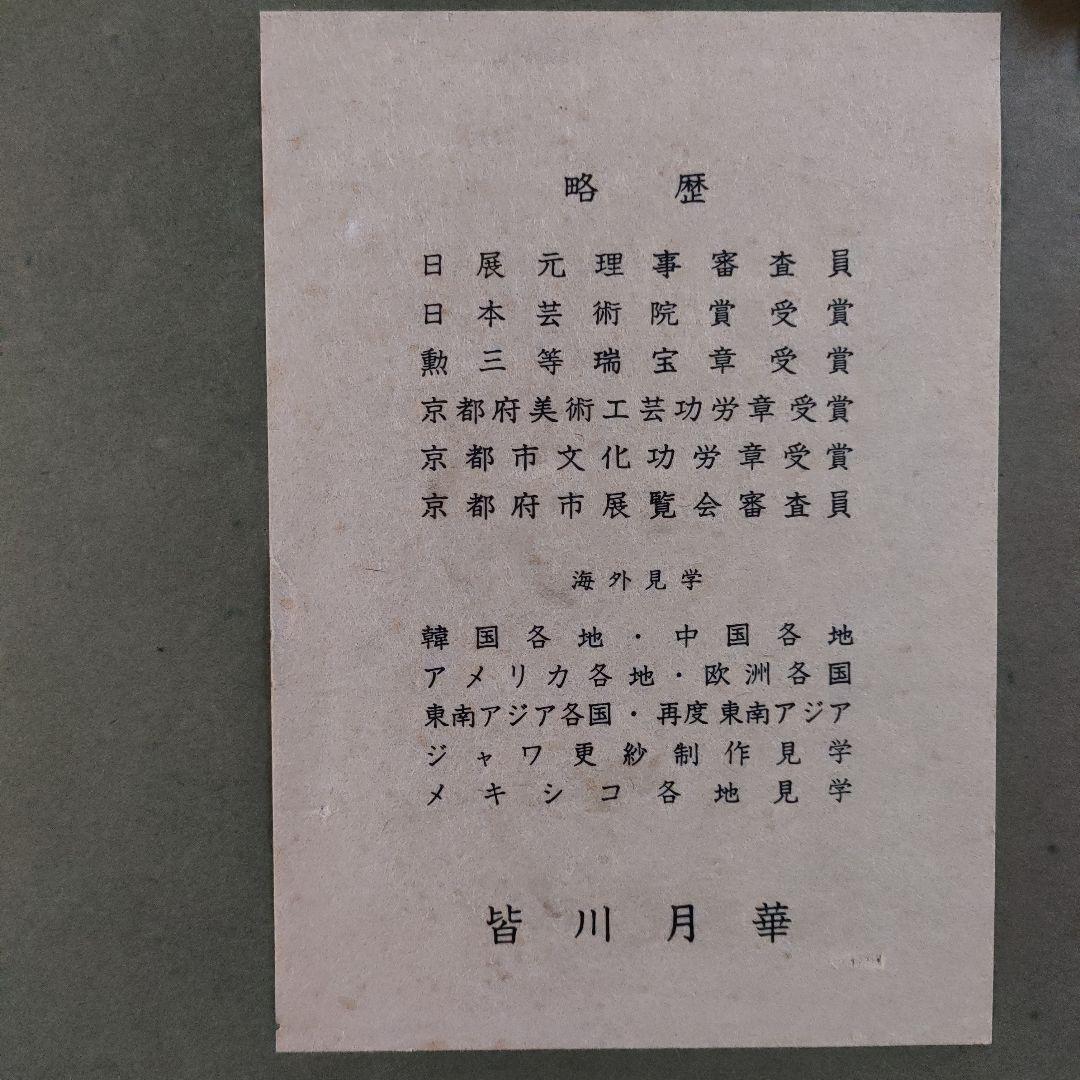 略歴
日展元理事審査員
日本芸術院賞受賞
勲三等瑞宝章受賞
京都府美術工芸功労章受賞
京都市文化功労章受賞
京都府市展覧会審査員
海外見学
韓国各地・中国各地
アメリカ各地・欧洲各国
東南アジア各国・再度東南アジア
ジャワ更紗制作見学
メキシコ各地見学
皆川月華